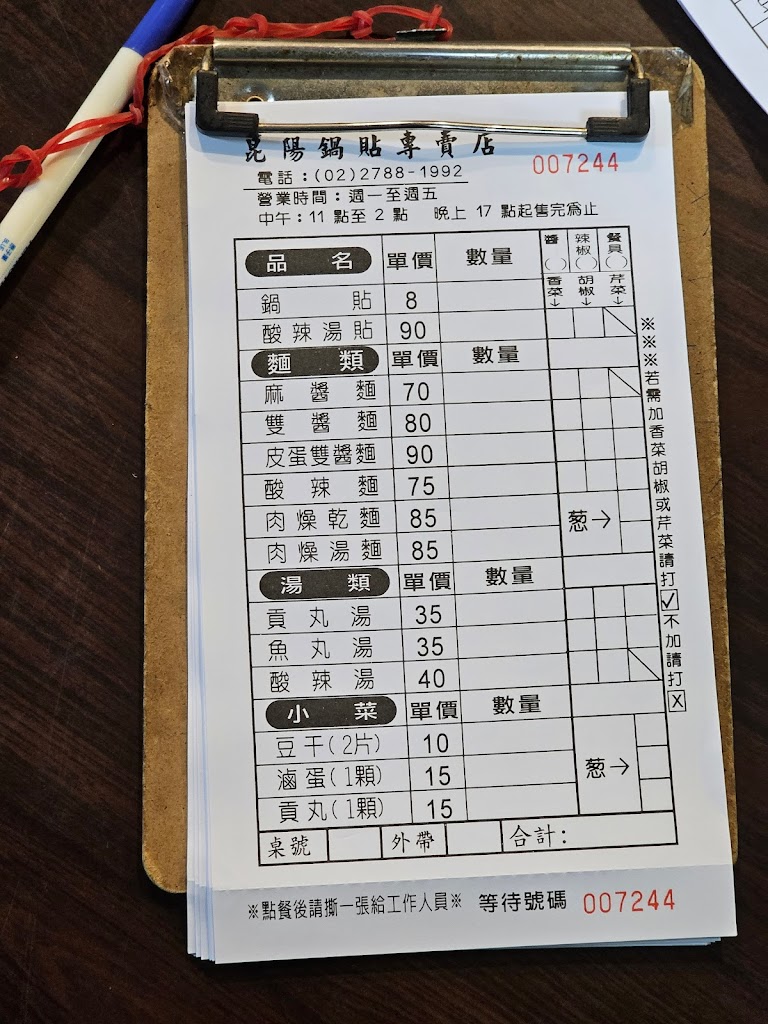 昆陽鍋貼專賣店
007244
電話：(02)2788-1992
營業時間：週一至週五
中午：11 點至 2 點 晚上 17 點起售完為止
品名 單價 數量 醬( ) 辣椒( ) 餐具( )
香菜↓ 胡椒↓ 芹菜↓
鍋貼 8
酸辣湯貼 90
麵類 單價 數量
麻醬麵 70
雙醬麵 80
皮蛋雙醬麵 90
酸辣麵 75
肉燥乾麵 85
肉燥湯麵 85
葱→
湯類 單價 數量
貢丸湯 35
魚丸湯 35
酸辣湯 40
小菜 單價 數量
豆干(2片) 10
滷蛋(1顆) 15
貢丸(1顆) 15
葱→
桌號 外帶 合計：
※※※若需加香菜胡椒或芹菜請打☑不加請打☒
※點餐後請撕一張給工作人員※ 等待號碼 007244